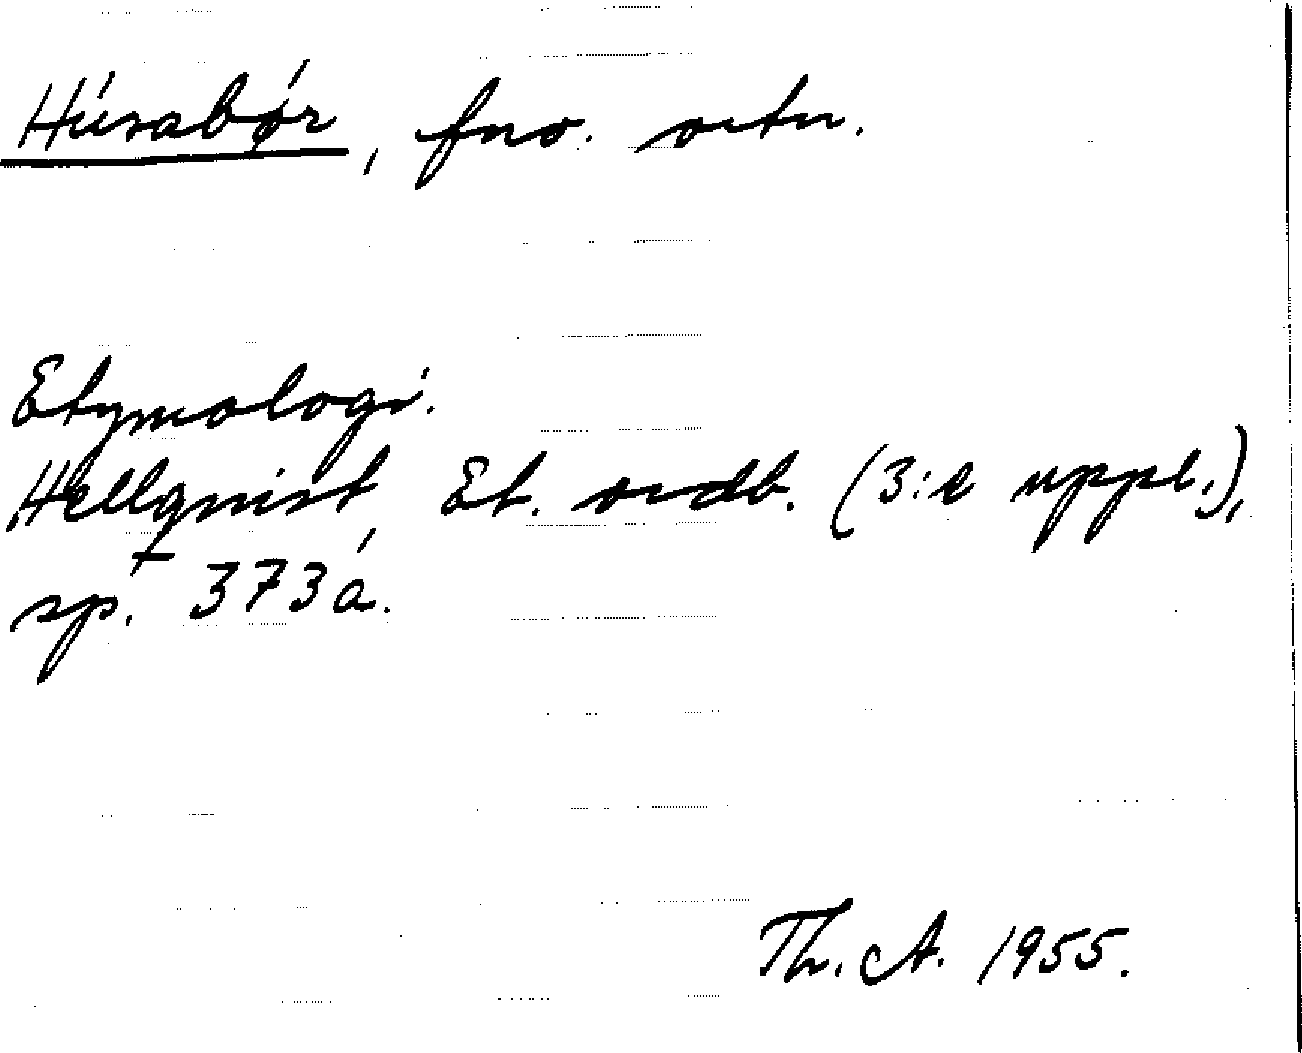 Húsabǿr, fno. ortn.
Etymologi.
Hellquist, Et. ordb. (3:e uppl.),
sp. 373 a.
Th. A. 1955.